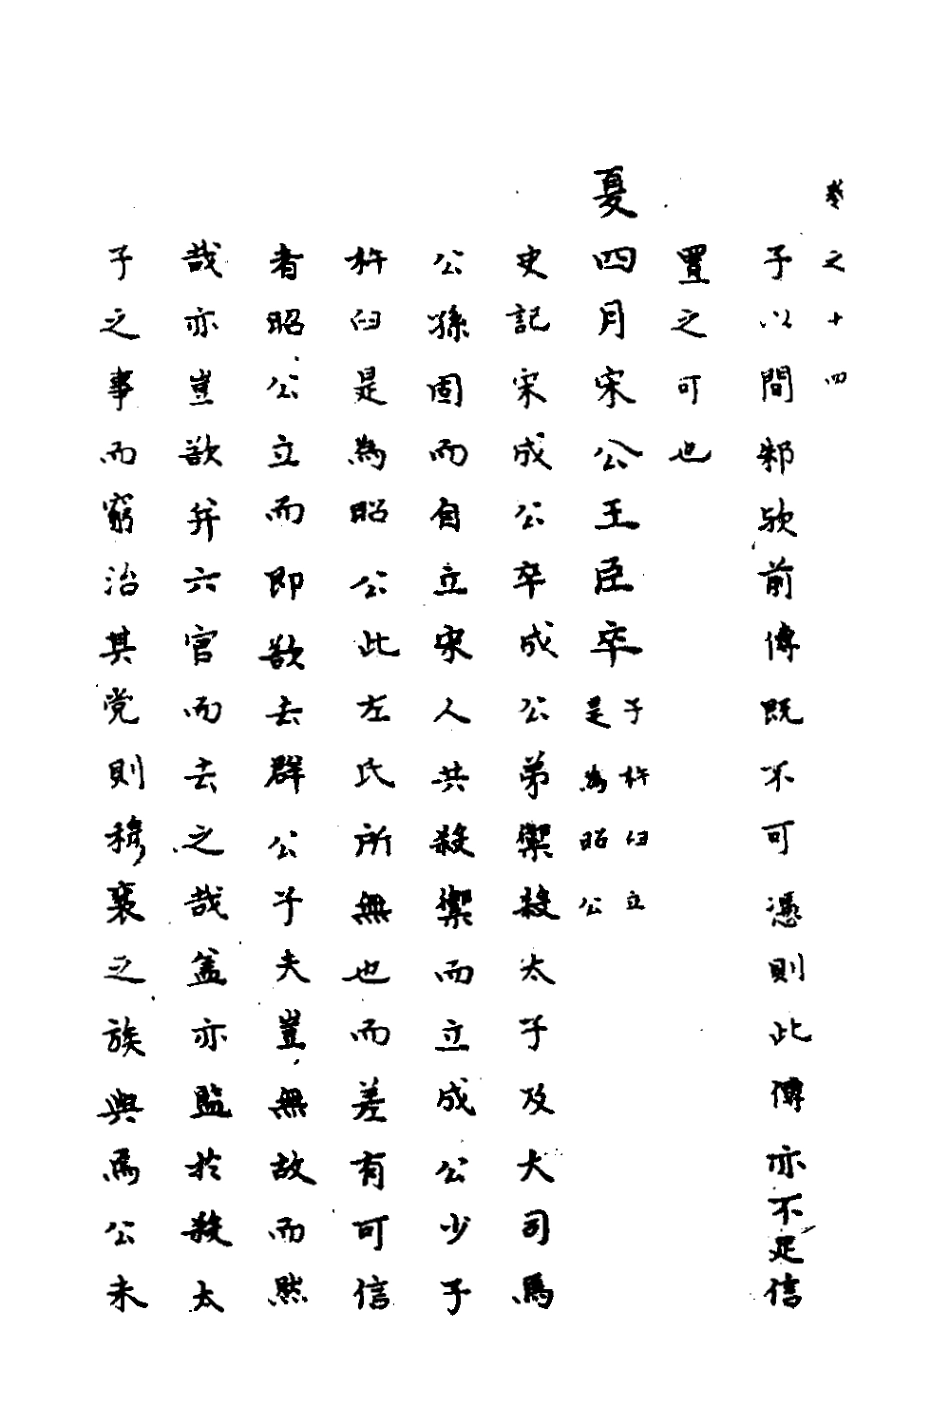 卷之十四
子以間邾欤前傳既不可憑則此傳亦不足信
置之可也
夏四月宋公王臣卒子杵臼立是為昭公
史記宋成公卒成公弟禦殺太子及大司馬
公孫固而自立宋人共殺禦而立成公少子
杵臼是為昭公此左氏所無也而差有可信
者昭公立而即欲去群公子夫豈無故而然
哉亦豈欲并六官而去之哉盖亦監於殺太
子之事而窮治其党則穆襄之族與焉公未